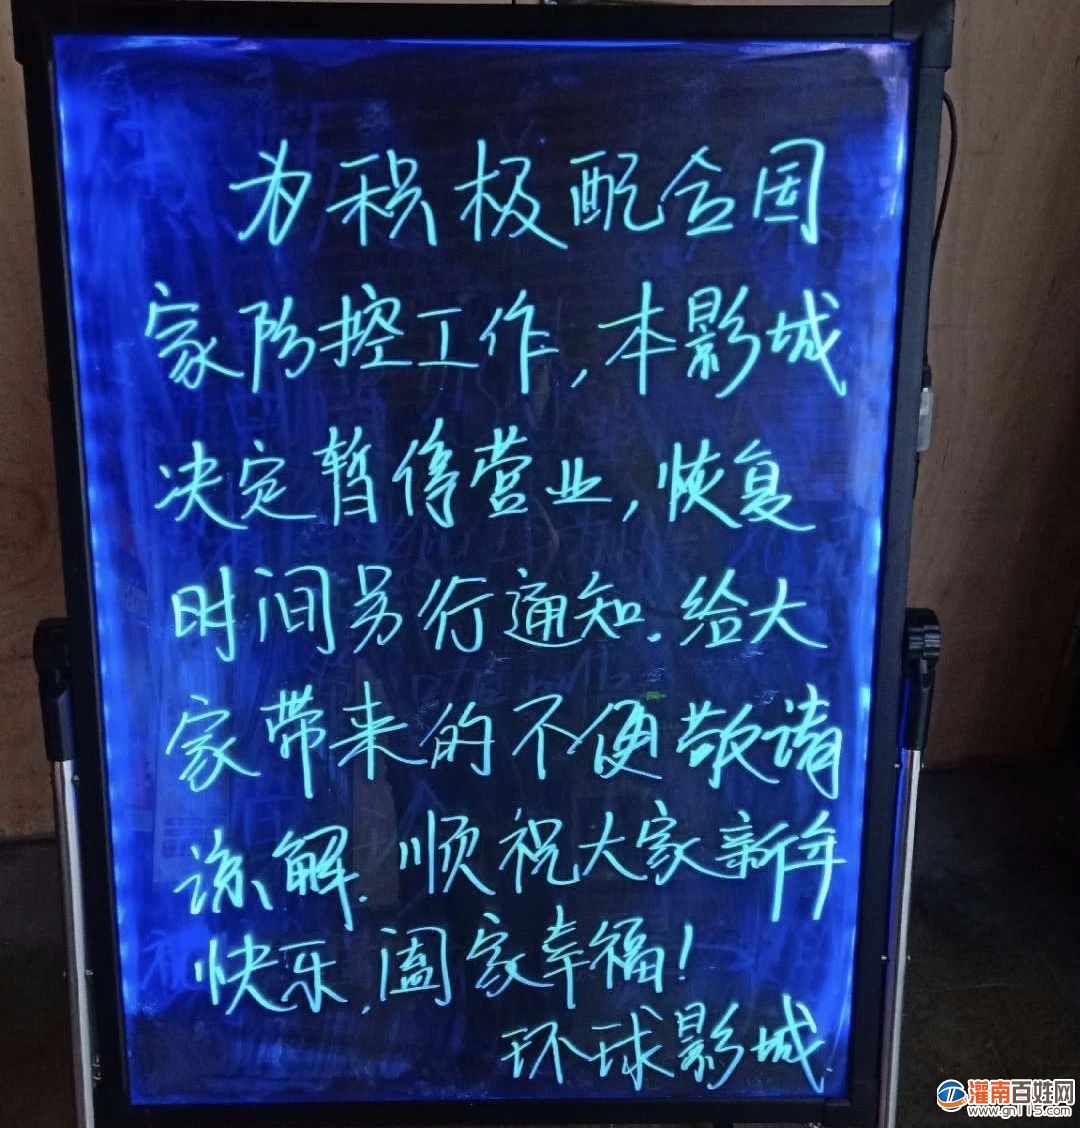 为积极配合国
家防控工作,本影城
决定暂停营业,恢复
时间另行通知.给大
家带来的不便敬请
谅解.顺祝大家新年
快乐,阖家幸福!
环球影城
灌南百姓网
www.gn115.com